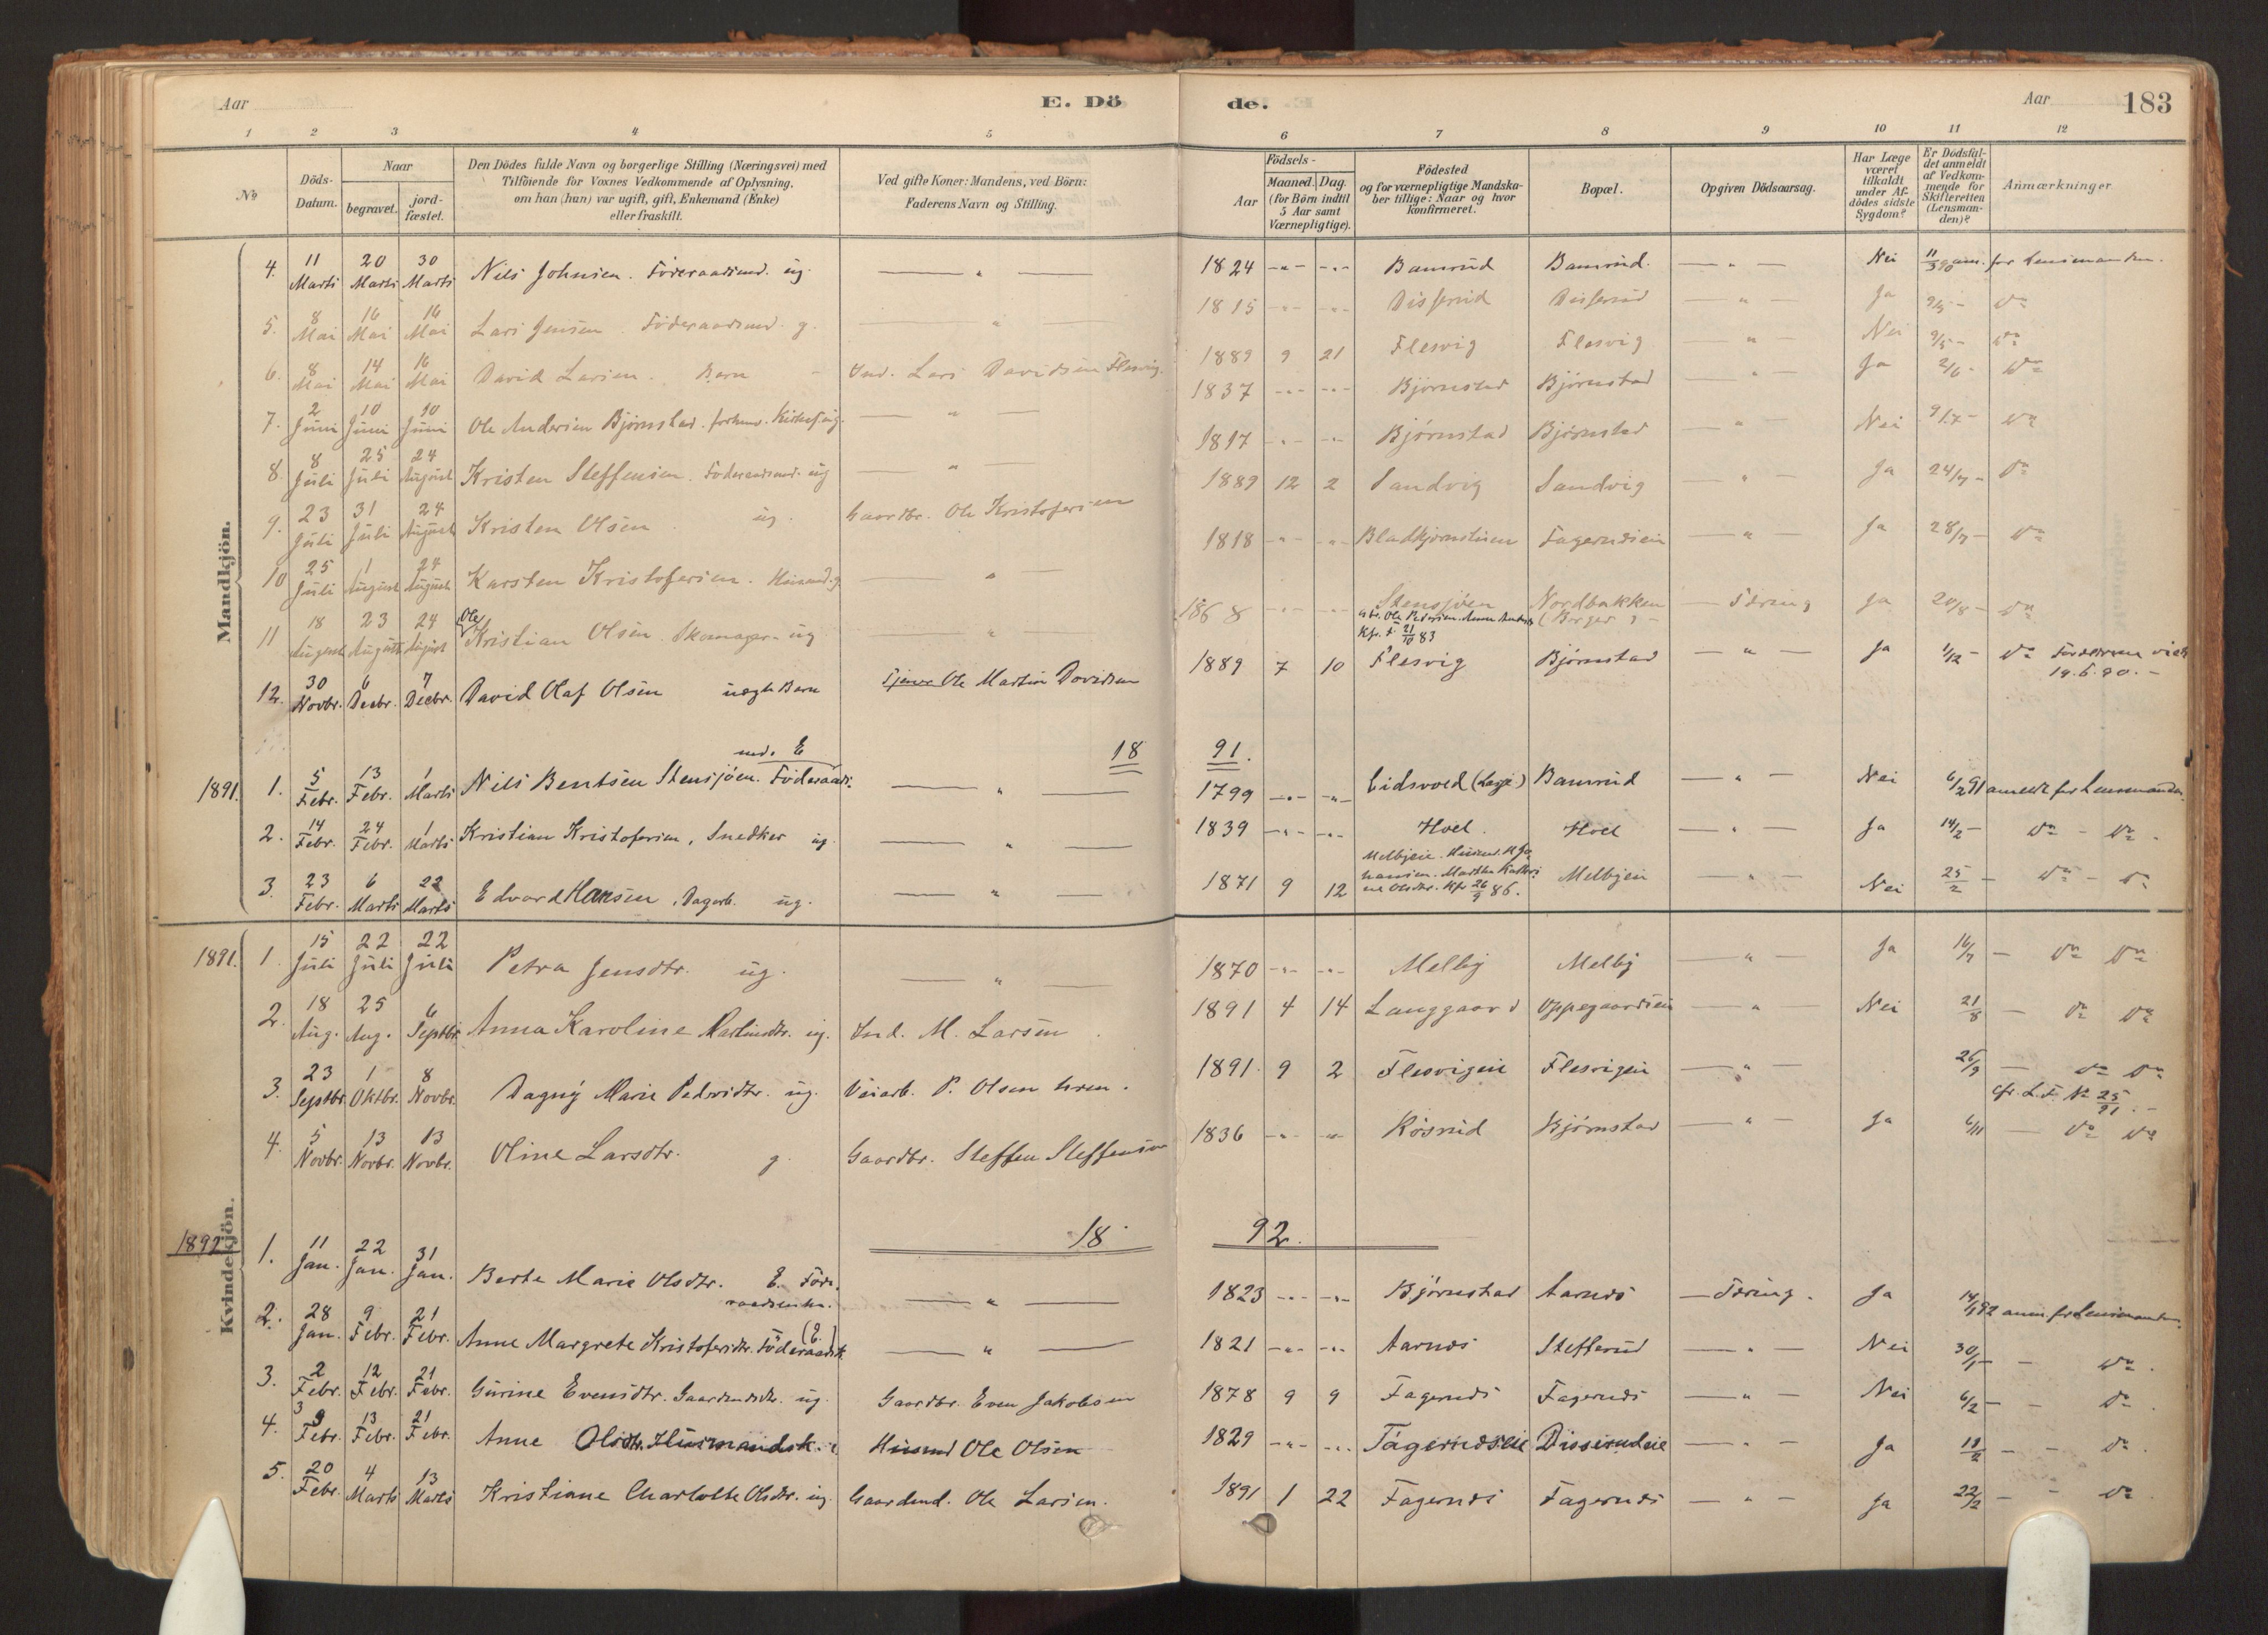 Aar E. Dö de. Aar 183
1 2 3 4 5 6 7 8 9 10 11 12
No
Döds-Datum.
Naar
begravet.
jord-fæstet.
Den Dödes fulde Navn og borgerlige Stilling (Næringsvei) med
Tilföiende for Voxnes Vedkommende af Oplysning,
om han (hun) var ugift, gift, Enkemand (Enke)
eller fraskilt.
Ved gifte Koner: Mandens, ved Börn:
Faderens Navn og Stilling.
Födsels-
Aar
Maaned. Dag.
(for Börn indtil
5 Aar samt
Værnepligtige).
Födested
og for værnepligtige Mandska-
ber tillige: Naar og hvor
konfirmeret.
Bopæl.
Opgiven Dödsaarsag.
Har Læge
været
tilkaldt
under Af-
dödes sidste
Sygdom?
Er Dödsfal-
det anmeldt
af Vedkom-
mende for
Skifteretten
(Lensman-
den)?
Anmærkninger.
Mandkjön.
4. 11 Marts 20 Marts 30 Marts Nils Johnsen. Föderaadsmd. ug. — " — 1824 -"- -"- Bamrud Bamrud. — " — Nei 11/3 90 anm. for Lensmanden.
5. 8 Mai 16 Mai 16 Mai Lars Jensen. Föderaadsmd. g. — " — 1815 -"- -"- Disserud Disserud — " — Ja 9/5 - Do
6. 8 Mai 14 Mai 16 Mai David Larsen. Barn - Ind. Lars Davidsen Flesvig. 1889 9 21 Flesvig Flesvig — " — Nei 9/5 - Do
7. 2 Juni 10 Juni 10 Juni Ole Andersen Bjørnstad. forhenv. Kirkes. ug. — " — 1837 -"- -"- Bjørnstad Bjørnstad — " — Ja 2/6 - Do
8. 8 Juli 25 Juli 24 August Kristen Steffensen. Föderaadsmd. ug — " — 1817 -"- -"- Bjørnstad Bjørnstad — " — Nei 9/7 - Do
9. 23 Juli 31 Juli 24 August Kristen Olsen. ug. Gaardbr. Ole Kristofersen 1889 12 2 Sandvig Sandvig — " — Ja 24/7 - Do
10 25 Juli 1 August 24 August Karsten Kristofersen. Husmd. g. — " — 1818 -"- -"- Bladkjernstuen Fagernæsein — " — Ja 28/7 - Do
11 18 August 23 August 24 August Ole Kristian Olsen. Skomager - ug — " — 1868 -"- -"- Stensjöen Nordbakken — Tæring Ja 20/8 - Do
Kfr. t 21/10 83
12. 30 Novbr. 6 Decbr. 7 Decbr. David Olaf Olsen uægte Barn Tjener Ole Martin Davidsen 1889 7 10 Flesvig Bjørnstad — " — Ja 1/12 - Do Forældrene viet
19.6.90. -
18 91.
1891. 1. 5 Febr. 13 Febr. 1 Marts Nils Bentsen Stensjöen. Föderaads- md. E — " — 1799 -"- -"- Eidsvold Bamrud — " — Nei 6/2 91 anmeldt for Lensmanden
2. 14 Febr. 24 Febr. 1 Marts Kristian Kristofersen, Snedker ug. — " — 1839 -"- -"- Hoel. Hoel — " — Ja 14/2 - Do - Do.
3. 23 Febr. 6 Marts 22 Marts Edvard Hansen, Dagarb. ug. — " — 1871 9 12 Melbyeie. Husmd. H. Jo-
hansen. Martha Kathri-
ne Olsdtr. Kfr 26/9 86. Melbyein — " — Nei 25/2 - Do - Do
Kvindekjön.
1891. 1 15 Juli 22 Juli 22 Juli Petra Jensdtr. ug. — " — 1870 -"- -"- Melby Melby — " — Ja 16/7 - Do Do
2. 18 Aug. 25 Aug. 6 Septbr. Anna Karoline Martinsdtr. ug. Ind. M. Larsen 1891 4 14 Langgaard Oppegaardsein — " — Nei 21/8 - Do Do
3. 23 Septbr. 1 Oktbr. 8 Novbr. Dagny Marie Pedersdtr. ug. Veiarb. P. Olsen 1891. 9 2 Flesvigeie Flesvigein — " — 26/9 - Do Do
cfr. L.F. No 25/91. -
4. 5 Novbr. 13 Novbr. 13 Novbr. Oline Larsdtr. g. Gaardbr. Steffen Steffensen 1836 -"- -"- Rösrud Bjørnstad — " — Ja 6/11 - Do Do
18 92.
1892 1. 11 Jan. 22 Jan. 31 Jan. Berte Marie Olsdtr. E. Föde-
raadsenke. — " — 1823 -"- -"- Bjørnstad Aarnæs — Tæring. Ja 14/1 92 anm. for Lensmanden.
2. 28 Jan. 9 Febr. 21 Febr. Anne Margrete Kristofersdtr. Föderaadsk. (E.) — " — 1821 -"- -"- Aarnæs Stefferud — " — Nei 30/1 - Do.
3. 2 Febr. 12 Febr. 21 Febr. Gurine Evensdtr. Gaardmdsdtr. ug. Gaardbr. Even Jakobsen 1878 9 9 Fagernæs Fagernæs — " — Nei 6/2 - Do.
4. 9 Febr. 13 Febr. 21 Febr. Anne Olsdtr. Husmandsk. Husmd Ole Olsen 1829 -"- -"- Fagernæseie Disserudeie — " — Ja 18/2 - Do.
5. 20 Febr. 4 Marts 13 Marts Kristiane Charlotte Olsdtr. ug. Gaardmd. Ole Larsen. 1891 1 22 Fagernæs Fagernæs — " — Ja 22/2 - Do